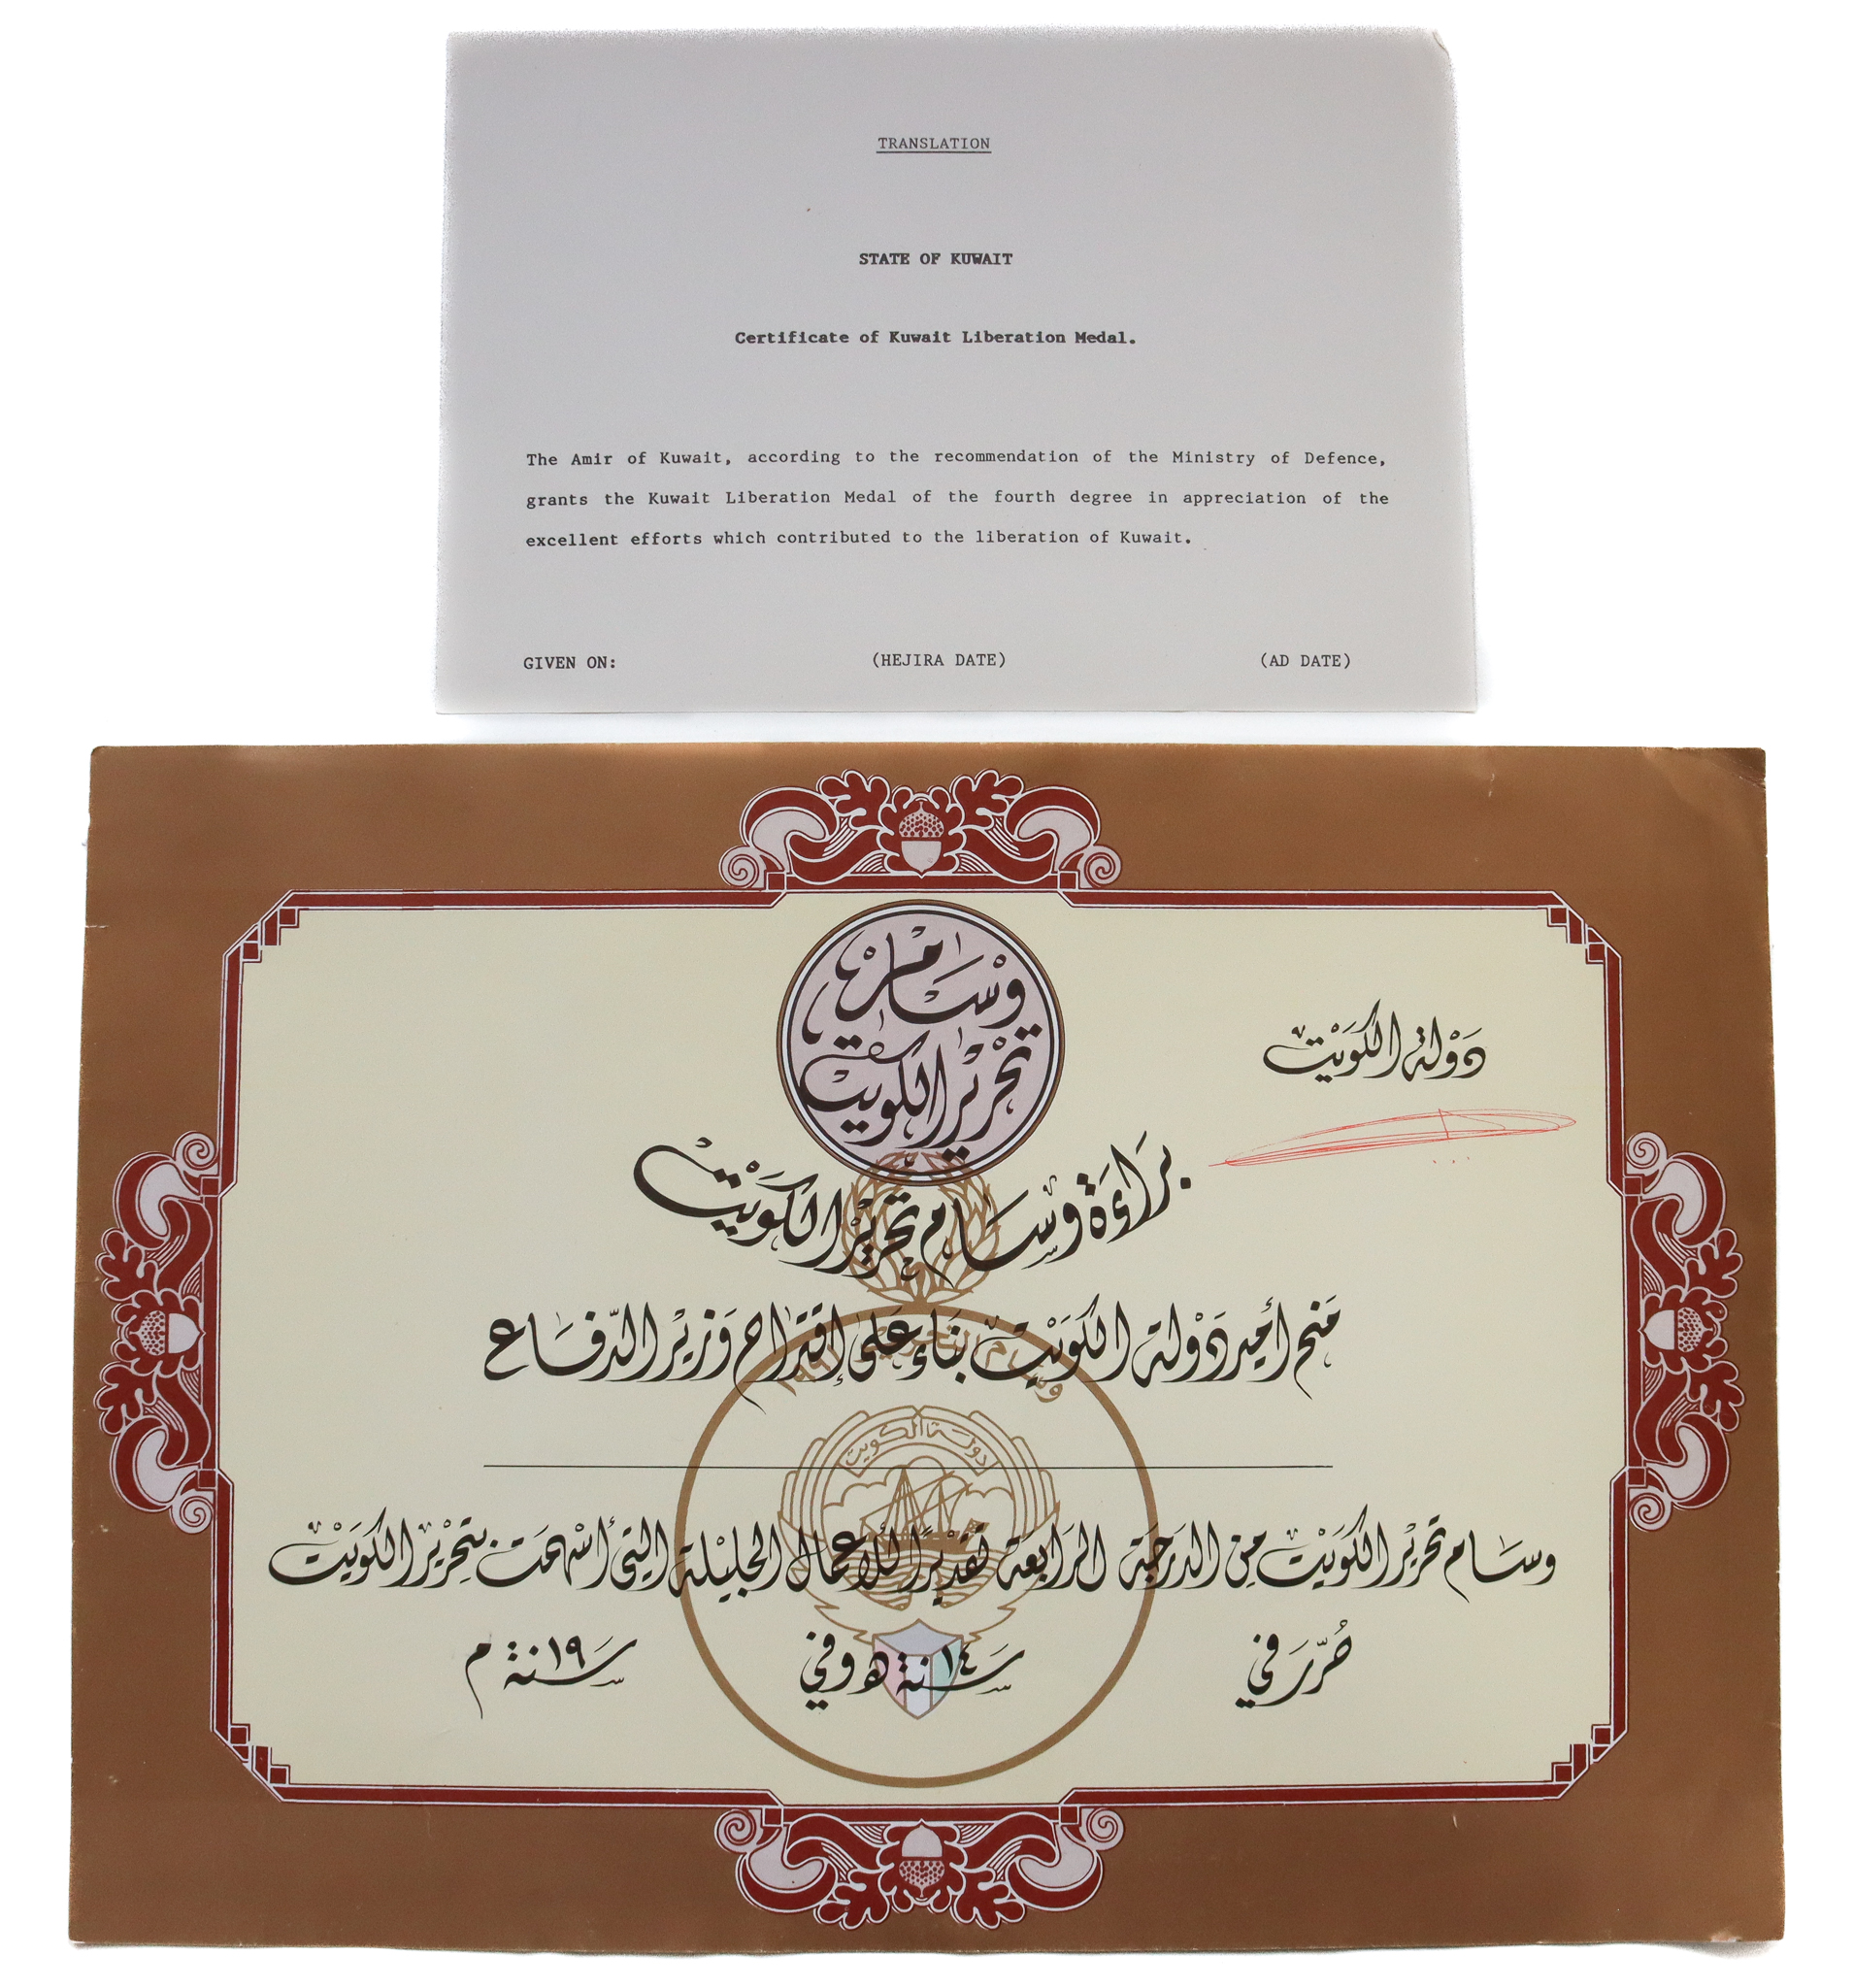 TRANSLATION
STATE OF KUWAIT
Certificate of Kuwait Liberation Medal.
The Amir of Kuwait, according to the recommendation of the Ministry of Defence,
grants the Kuwait Liberation Medal of the fourth degree in appreciation of the
excellent efforts which contributed to the liberation of Kuwait.
GIVEN ON: (HEJIRA DATE) (AD DATE)
وسام
تحرير الكويت
دَوْلة الكوَيْت
بَراءَة وسَام تحرْيْر الكوَيْت
مَنح أمير دَوْلة الكوَيْت بنَاء عَلى إقتَراح وَزيْر الدّفَاع
دولة الكويت
وسَام تحرْيْر الكوَيْت مِن الدرَجَة الرَابعَة تقديْرًا للأعمال الجليْلة التي أسْهمَت بتحرِيْر الكوَيْت
حُرّرَ في سَنة ١٤ هـ وفي سَنة ١٩ م